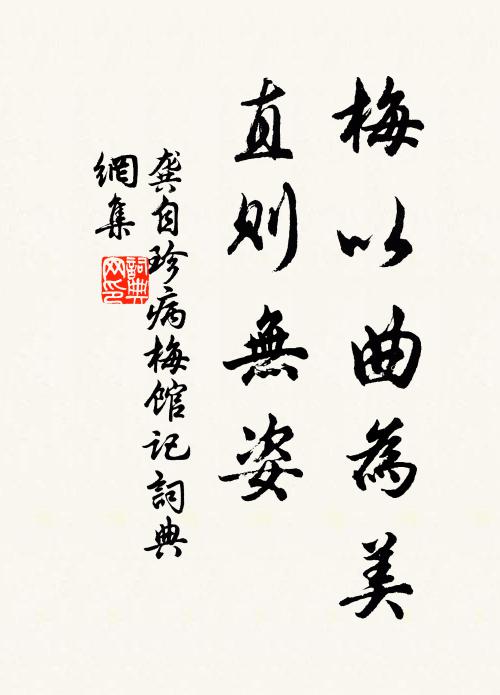 梅以曲為美
直則無姿
龔自珍病梅館记詞典
網集
詞典网印